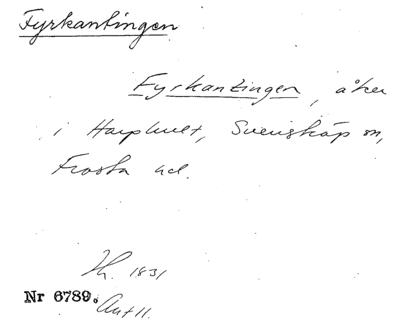 Fyrkantingen
Fyrkantingen, åker
i Harphult, Svensköp sn,
Frosta hd.
Lh. 1831
Nr 6789.
Akt 11.